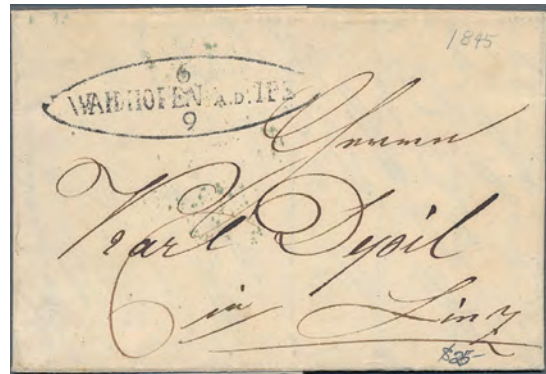 1845
6
WAIDHOFEN A.D. IPS
9
Herrn
Karl
in Linz
$25-